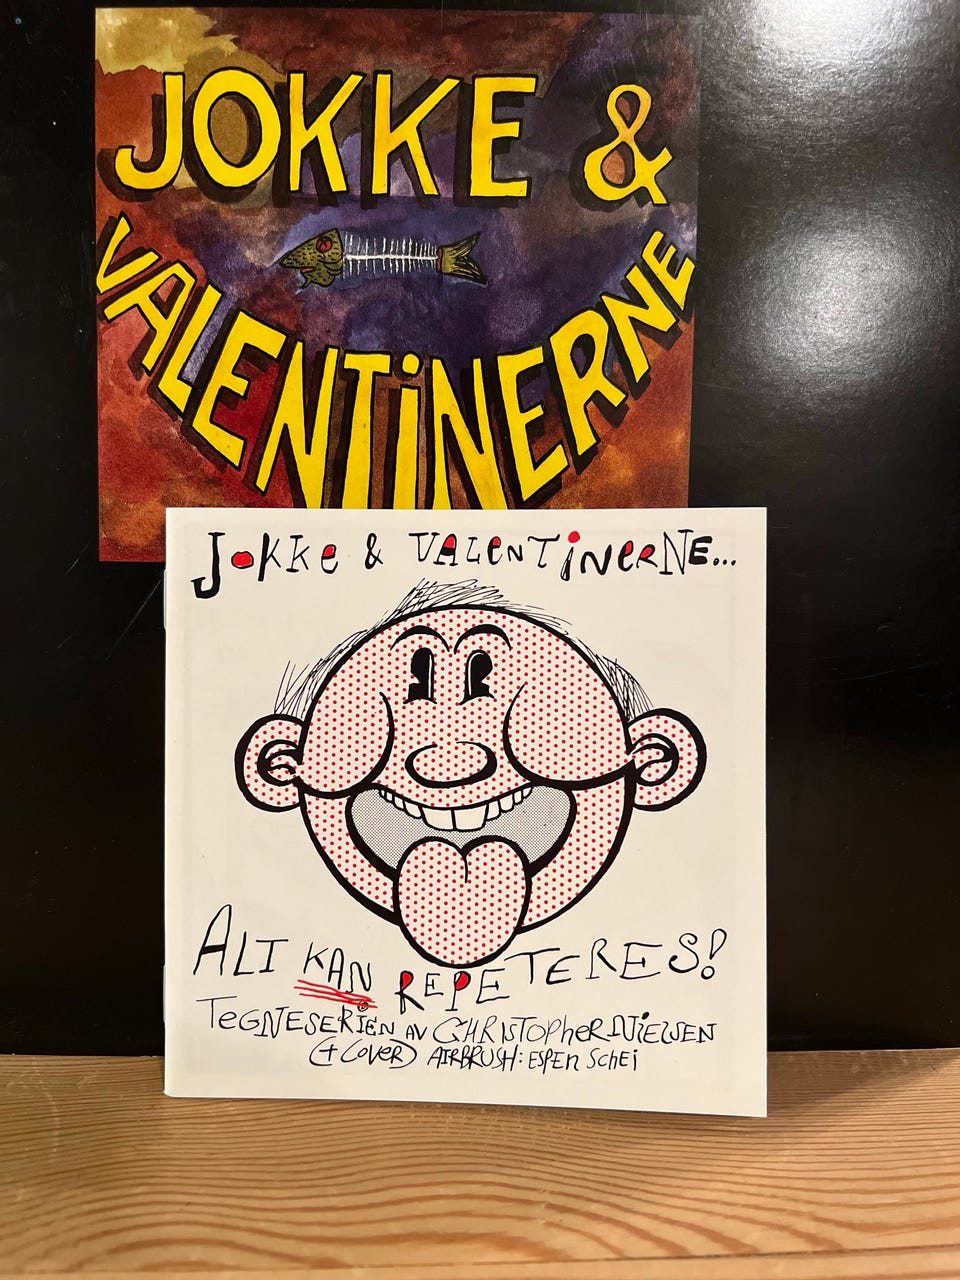 JOKKE &
VALENTiNERNE
JoKKe & VALenTinerNE...
ALT KAN REPETERES!
TeGNESERIEN AV CHRISTOPher NiELSEN
(+ Cover) AIRBRUSH: ESPEn Schei